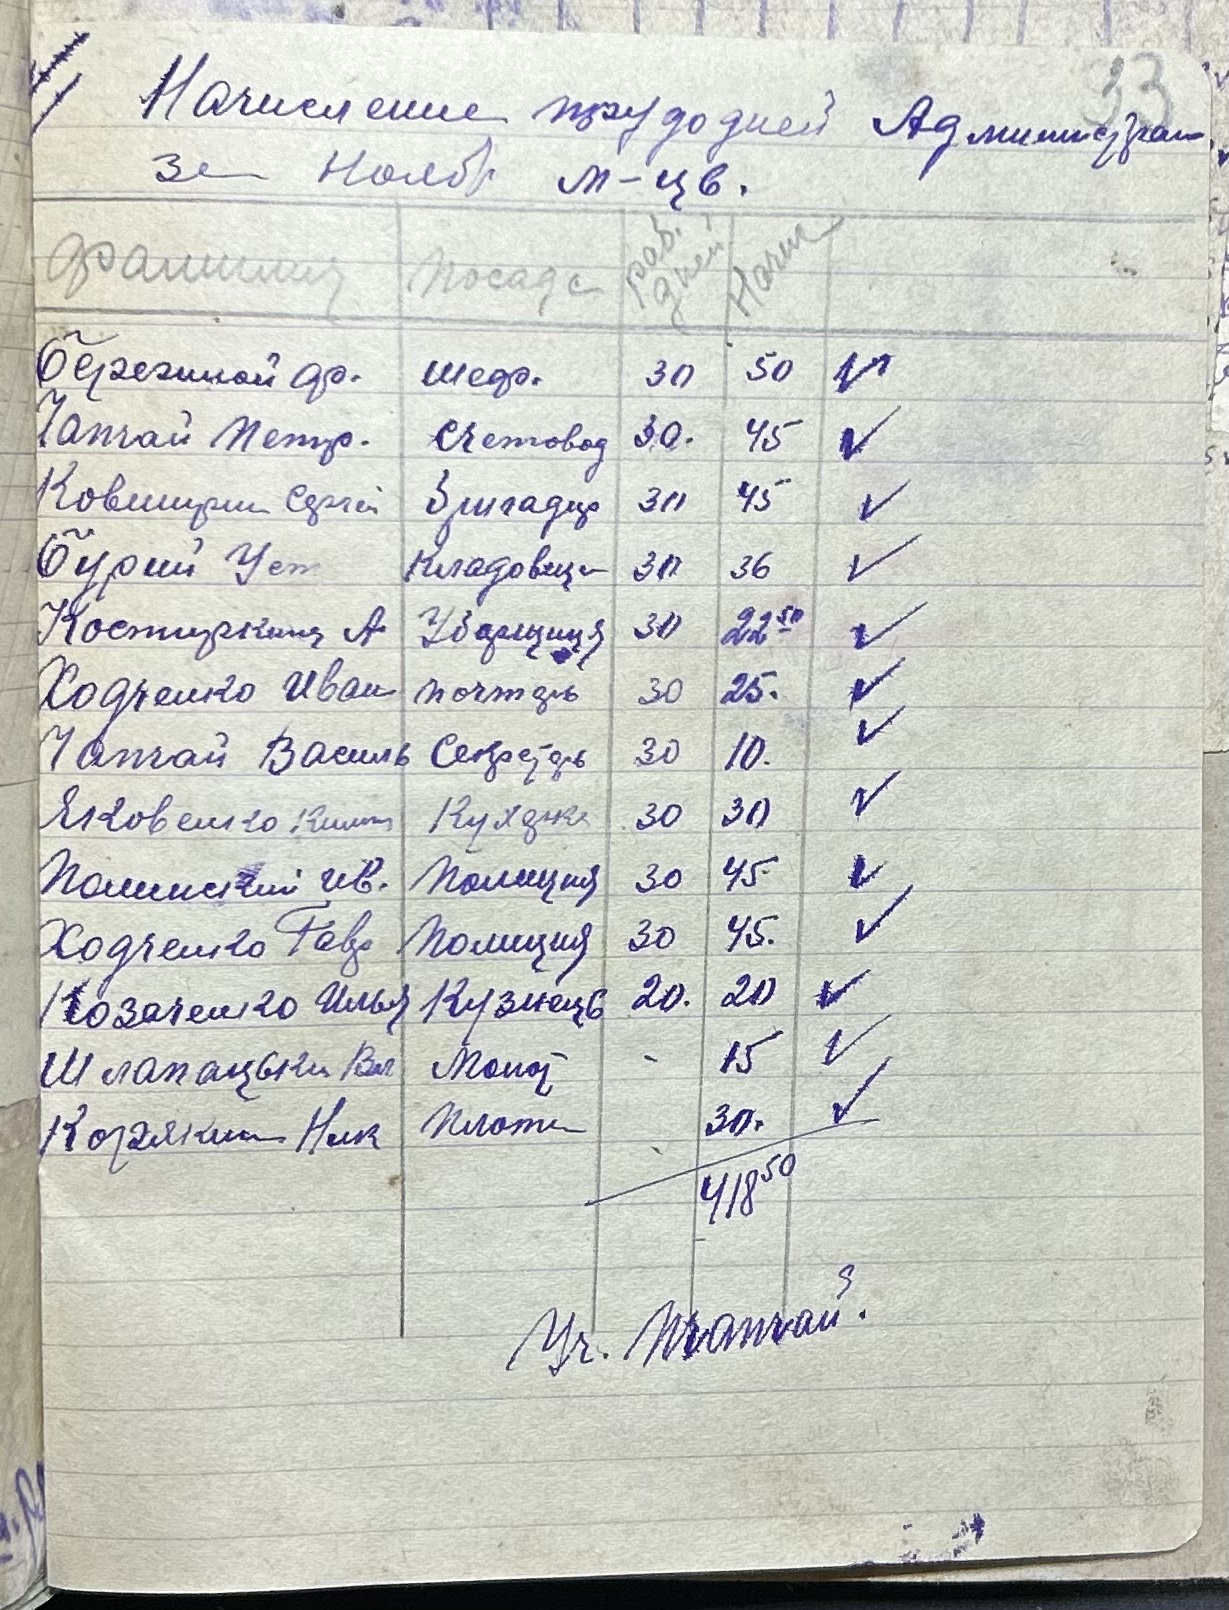 33
Начисление трудодней Администрац.
за Ноябр м-цв.
Фамилия Посада раб. дней Начис
Бережной Фр. шеф. 30 50
Чапчай Петр. Счетовод 30. 45
Сергій Бригадир 30 45
Бурий Уст Кладовщи 30 36
А Уборщиця 30 22 50
Ходченко Иван почтарь 30 25.
Чапчай Василь Секретарь 30 10.
Яковенко Кухарка 30 30
ив. Полиция 30 45.
Ходченко Гавр Полиция 30 45.
Козаченко Илья Кузнець 20. 20
Шлапацьки - 15
Корякин Ник Плотн 30.
418 50
Уч. Чапчай.